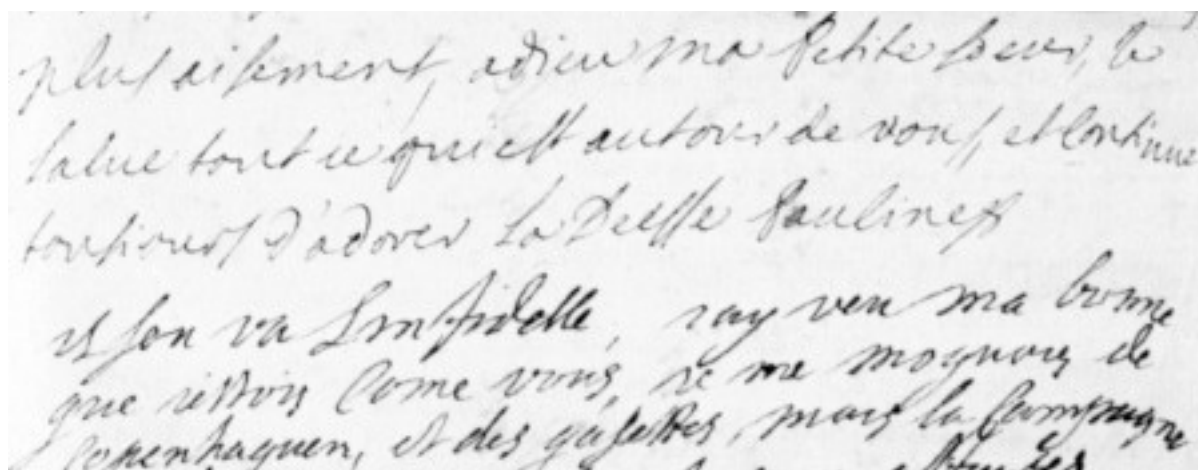 plus aisement, adieu ma Petite soeur, Ie
salue tout ce qui est autour de vous, et Continue
tousiours d'adorer la Deesse Pauline
il s'en va L'infidelle, iay veu ma bonne
que iestois Come vous, ie me moquois de
Copenhaguen, et des gasettes, mais la Campagne